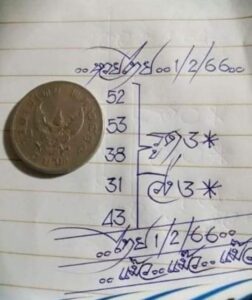 ..หวยไทย..1/2/66..
52
53
38
31
43
รูด 3*
วิ่ง 3*
..ไทย 1/2/66..
..แม๊ว..แม๊ว..แม๊ว